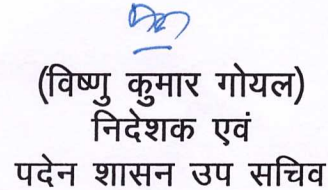 (विष्णु कुमार गोयल)
निदेशक एवं
पदेन शासन उप सचिव